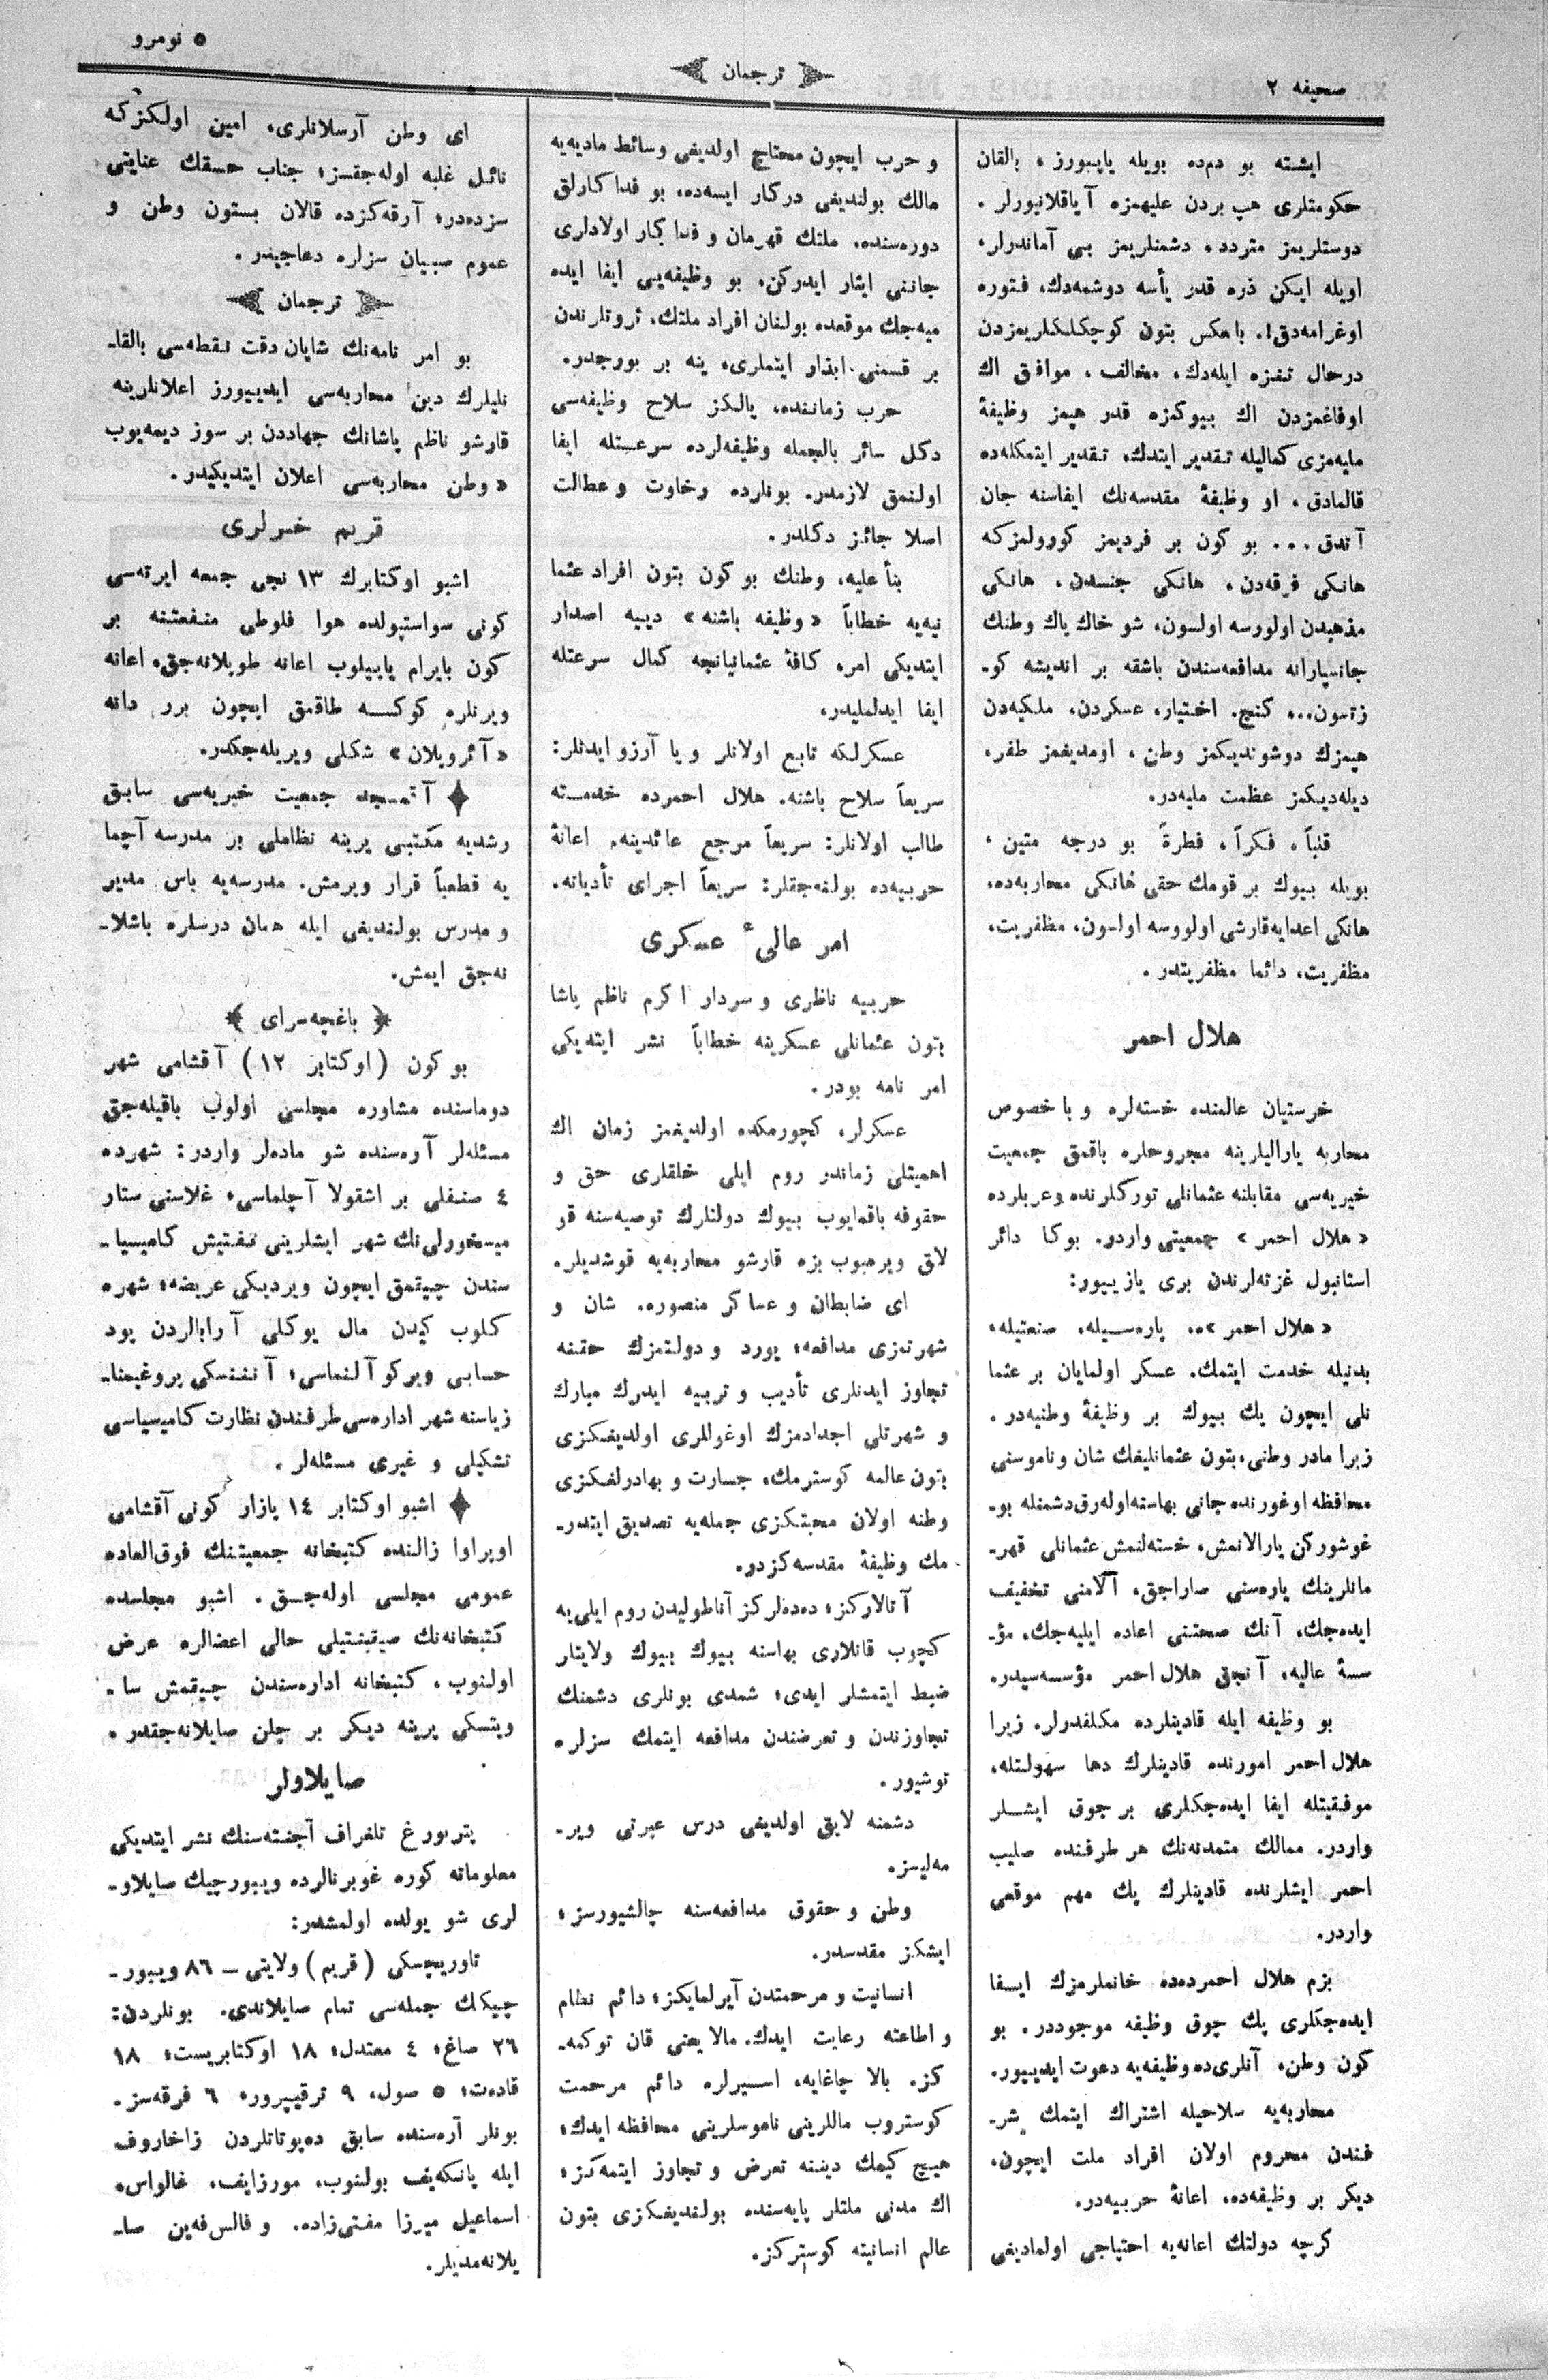 صحیفه ٢
ترجمان
٥ نومرو
ایشته بو دم‌ده بویله یاپیبورز، بالقان
حکومتلری هپ بردن علیهمزه آیاقلانیورلر.
دوستلریمز متردد، دشمنلریمز بی آماندرلر،
اویله ایکن ذره قدر یأسه دوشمه‌دك، فتوره
اوغرامه‌دق!. باعکس بتون کوچکلکلریمزدن
درحال تنزه ایله‌دك، مخالف، موافق اك
اوفاغمزدن اك بیوکمزه قدر هپمز وظیفهٔ
مایه‌مزی کمالیله تقدیر ایتدك، تقدیر ایتمکله‌ده
قالمادق، او وظیفهٔ مقدسه‌نك ایفاسنه جان
آتدق... بو کون بر فردیمز کورولمزکه
هانکی فرقه‌دن، هانکی جنسدن، هانکی
مذهبدن اولورسه اولسون، شو خاك پاك وطنك
جانسپارانه مدافعه‌سندن باشقه بر اندیشه کو-
زتسون... کنج. اختیار، عسکردن، ملکیه‌دن
هپمزك دوشوندیکمز وطن، اومدیغمز ظفر،
دیله‌دیکمز عظمت ملیه‌در.
قلباً، فکراً، فطرةً بو درجه متین،
بویله بیوك بر قومك حقی هانکی محاربه‌ده،
هانکی اعدایه قارشی اولورسه اولسون، مظفریت،
مظفریت، دائما مظفریتدر.
هلال احمر
خرستیان عالمنده خسته‌لره و باخصوص
محاربه یارالیلرینه مجروحلره باقمق جمعیت
خیریه‌سی مقابلنه عثمانلی تورکلرنده وعربلرده
«هلال احمر» جمعیتی واردر. بوکا دائر
استانبول غزته‌لرندن بری یازییور:
«هلال احمر»ه، پاره‌سیله، صنعتیله،
بدنیله خدمت ایتمك. عسکر اولمایان بر عثما
نلی ایچون پك بیوك بر وظیفهٔ وطنیه‌در.
زیرا مادر وطنی، بتون عثمانلیغك شان وناموسنی
محافظه اوغورنده جانی بهاسنه اوله‌رق دشمنله بو-
غوشورکن یارالانمش، خسته‌لنمش عثمانلی قهر-
مانلرینك یاره‌سنی صاراجق، آلامنی تخفیف
ایده‌جك، آنك صحتنی اعاده ایلیه‌جك، مؤ-
سسهٔ عالیه، آنجق هلال احمر مؤسسه‌سیدر.
بو وظیفه ایله قادینلرده مکلفدرلر. زیرا
هلال احمر امورنده قادینلرك دها سهولتله،
موفقیتله ایفا ایده‌جکلری بر جوق ایشلر
واردر. ممالك متمدنه‌نك هر طرفنده صلیب
احمر ایشلرنده قادینلرك پك مهم موقعی
واردر.
بزم هلال احمرده‌ده خانملرمزك ایفا
ایده‌جکلری پك چوق وظیفه موجوددر. بو
کون وطن، آنلری‌ده وظیفه‌یه دعوت ایدییور.
محاربه‌یه سلاحیله اشتراك ایتمك شر-
فندن محروم اولان افراد ملت ایچون،
دیکر بر وظیفه‌ده، اعانهٔ حربیه‌در.
کرچه دولتك اعانه‌یه احتیاجی اولمادیغی
و حرب ایچون محتاج اولدیغی وسائط مادیه‌یه
مالك بولندیغی درکار ایسه‌ده، بو فداکارلق
دوره‌سنده، ملتك قهرمان و فداکار اولادلری
جاننی ایثار ایدرکن، بو وظیفه‌یی ایفا ایده
میه‌جك موقعده بولنان افراد ملتك، ثروتلرندن
بر قسمنی ایذار ایتملری، ینه بر بورجدر.
حرب زماننده، یالکز سلاح وظیفه‌سی
دکل سائر بالجمله وظیفه‌لرده سرعتله ایفا
اولنمق لازمدر. بونلرده رخاوت و عطالت
اصلا جائز دکلدر.
بنأ علیه، وطنك بو کون بتون افراد عثما
نیه‌یه خطاباً «وظیفه باشنه» دییه اصدار
ایتدیکی امر، کافهٔ عثمانیانجه کمال سرعتله
ایفا ایدلملیدر،
عسکرلکه تابع اولانلر و یا آرزو ایدنلر:
سریعاً سلاح باشنه. هلال احمرده خدمته
طالب اولانلر: سریعاً مرجع عائدینه. اعانهٔ
حربیه‌ده بولنه‌جقلر: سریعاً اجرای تأدیاته.
امر عالیٔ عسکری
حربیه ناظری و سردار اکرم ناظم پاشا
بتون عثمانلی عسکرینه خطاباً نشر ایتدیکی
امر نامه بودر.
عسکرلر، کچورمکده اولدیغمز زمان اك
اهمیتلی زماندر روم ایلی خلقلری حق و
حقوقه باقمایوب بیوك دولتلرك توصیه‌سنه قو
لاق ویرمیوب بزه قارشو محاربه‌یه قوشدیلر.
ای ضابطان و عساکر منصوره. شان و
شهرتمزی مدافعه؛ یورد و دولتمزك حقنه
تجاوز ایدنلری تأدیب و تربیه ایدرك مبارك
و شهرتلی اجدادمزك اوغوللری اولدیغکزی
بتون عالمه کوسترمك، جسارت و بهادرلغکزی
وطنه اولان محبتکزی جمله‌یه تصدیق ایتدر-
مك وظیفهٔ مقدسه‌کزدر.
آتالارکز، دده‌لرکز آناطولیدن روم ایلی‌یه
کچوب قانلاری بهاسنه بیوك بیوك ولایتلر
ضبط ایتمشلر ایدی؛ شمدی بونلری دشمنك
تجاوزندن و تعرضندن مدافعه ایتمك سزلره
توشیور.
دشمنه لایق اولدیغی درس عبرتی ویر-
مه‌لیسز.
وطن و حقوق مدافعه‌سنه چالشیورسز؛
ایشکز مقدسدر.
انسانیت و مرحمتدن آیرلمایکز؛ دائم نظام
و اطاعته رعایت ایدك. مالا یعنی قان توکمه-
کز. بالا چاغایه، اسیرلره دائم مرحمت
کوستروب ماللرینی ناموسلرینی محافظه ایدك؛
هیچ کیمك دیننه تعرض و تجاوز ایتمه‌کز؛
اك مدنی ملتلر پایه‌سنده بولندیغکزی بتون
عالم انسانیته کوسترکز.
ای وطن آرسلانلری، امین اولکزکه
نائل غلبه اوله‌جقسز؛ جناب حقك عنایتی
سزده‌در؛ آرقه‌کزده قالان بستون وطن و
عموم صبیان سزلره دعاجیدر.
ترجمان
بو امر نامه‌نك شایان دقت نقطه‌سی بالقا-
نلیلرك دین محاربه‌سی ایدییورز اعلانلرینه
قارشو ناظم پاشانك جهاددن بر سوز دیمه‌یوب
«وطن محاربه‌سی اعلان ایتدیکیدر.
قریم خبرلری
اشبو اوکتابرك ١٣ نجی جمعه ایرته‌سی
کونی سواستپولده هوا فلوطی منفعتنه بر
کون بایرام یاپیلوب اعانه طوپلانه‌جق، اعانه
ویرنلره کوکسه طاقمق ایچون برر دانه
«آئروپلان» شکلی ویریله‌جکدر.
آقمسجد جمعیت خیریه‌سی سابق
رشدیه مکتبی یرینه نظاملی بر مدرسه آچما
یه قطعیاً قرار ویرمش. مدرسه‌یه باس مدیر
و مدرس بولندیغی ایله همان درسلره باشلا-
نه‌جق ایمش.
باغچه‌سرای
بو کون (اوکتابر ١٢) آقشامی شهر
دوماسنده مشاوره مجلسی اولوب باقیله‌جق
مسئله‌لر آره‌سنده شو ماده‌لر واردر: شهرده
٤ صنفلی بر اشقولا آچلماسی؛ غلاسنی ستار
میسخورلی‌نك شهر ایشلرینی تفتیش کامیسیا-
سندن چیقمق ایچون ویردیکی عریضه؛ شهره
کلوب کیدن مال یوکلی آرابالردن پود
حسابی ویرکو آلنماسی؛ آننسکی پروغیمنا-
زیاسنه شهر اداره‌سی طرفندن نظارت کامیسیاسی
تشکیلی و غیری مسئله‌لر.
اشبو اوکتابر ١٤ پازار کونی آقشامی
اوپراوا زالنده کتبخانه جمعیتنك فوق‌العاده
عمومی مجلسی اوله‌جق. اشبو مجلسده
کتبخانه‌نك صیقینتیلی حالی اعضالره عرض
اولنوب، کتبخانه اداره‌سندن چیقمش سا-
ویتسکی یرینه دیکر بر چلن صایلانه‌جقدر.
صایلاولر
پتربورغ تلغراف آجنته‌سنك نشر ایتدیکی
معلوماته کوره غوبرنالرده ویبورچیك صایلاو-
لری شو یولده اولمشدر:
تاوریچسکی (قریم) ولایتی — ٨٦ ویبور-
چیکك جمله‌سی تمام صایلاندی. بونلردن:
٢٦ صاغ؛ ٤ معتدل؛ ١٨ اوکتابریست؛ ١٨
قاده‌ت؛ ٥ صول، ٩ ترقیپرور، ٦ فرقه‌سز.
بونلر آره‌سنده سابق ده‌پوتاتلردن زاخاروف
ایله پانکه‌یف بولنوب، مورزایف، غالواس،
اسماعیل میرزا مفتی‌زاده. و فالس‌فه‌ین صا-
یلانه‌مدیلر.